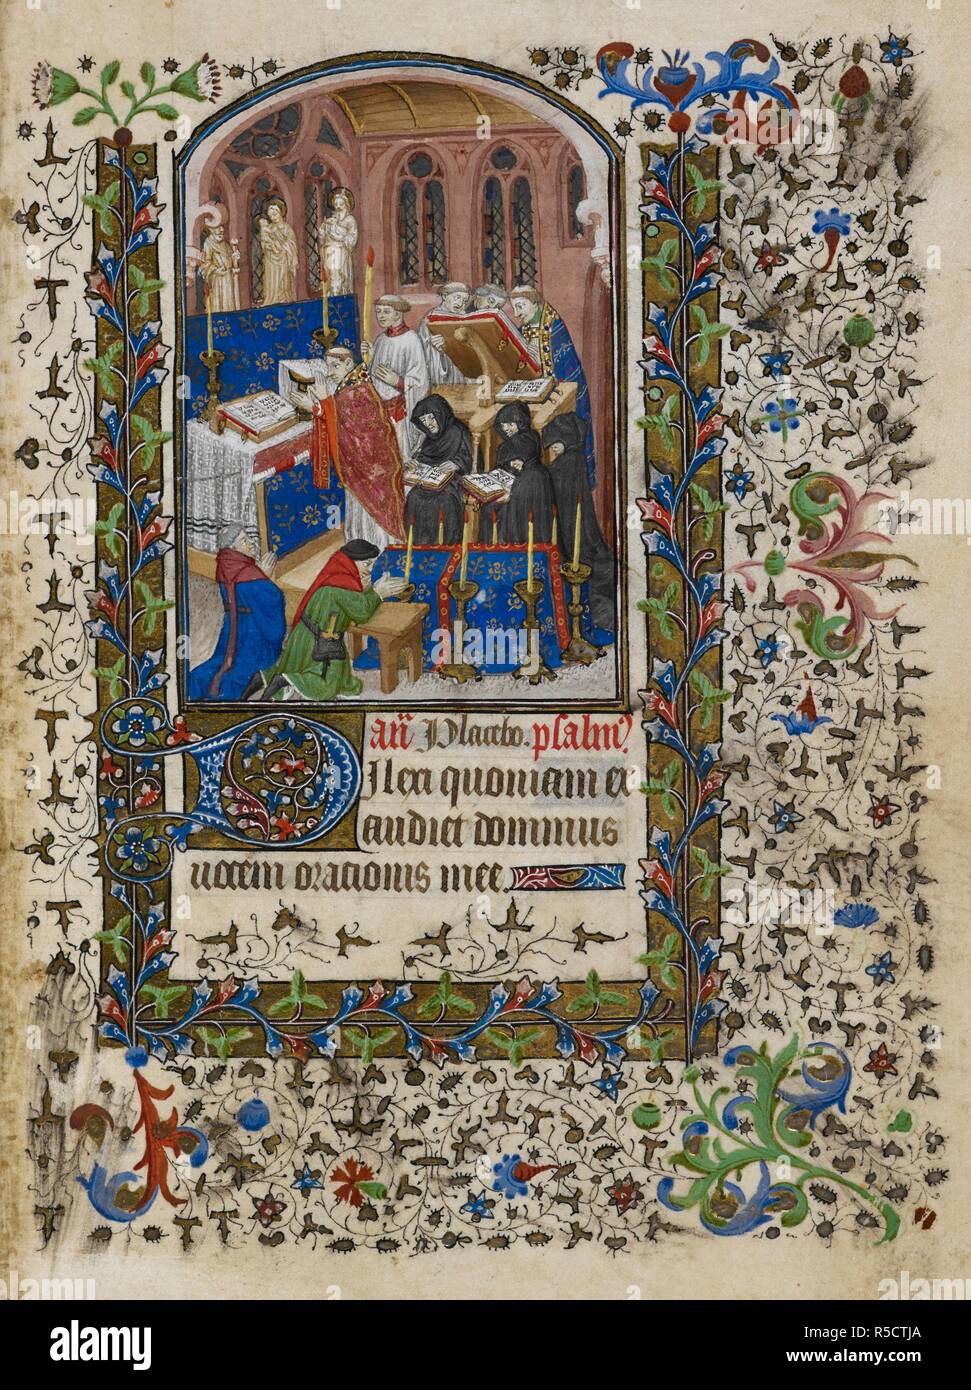 an̄ Placebo. psalm᷒
Dilexi quoniam ex
audiet dominus
uocem orationis mee.
alamy
Image ID: R5CTJA
www.alamy.com